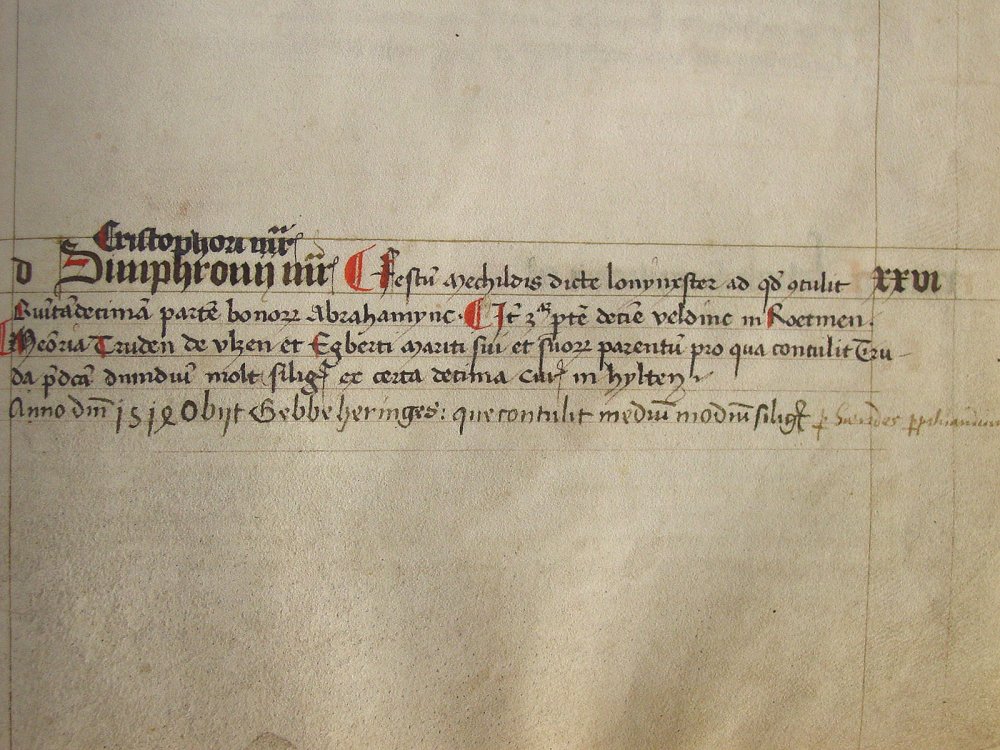 Cristophori mr̄
d Simphronij mr̄ Festū Mechildis dicte lonynxster ad qd̄ ꝯtulit xxvi
partē bonorꝝ Abrahamync. Itē 3ā ptē decie veldinc in Roetmen.
Meōria Truden de vlzen et Egberti mariti sui et suorꝝ parentū pro qua contulit Tru-
da p̄dcā dimidiū molt siliḡ ex certa decima cur̄ in hylten
Anno dm̄ Obijt Gebbe heringes: que contulit mediū modiū siliḡ